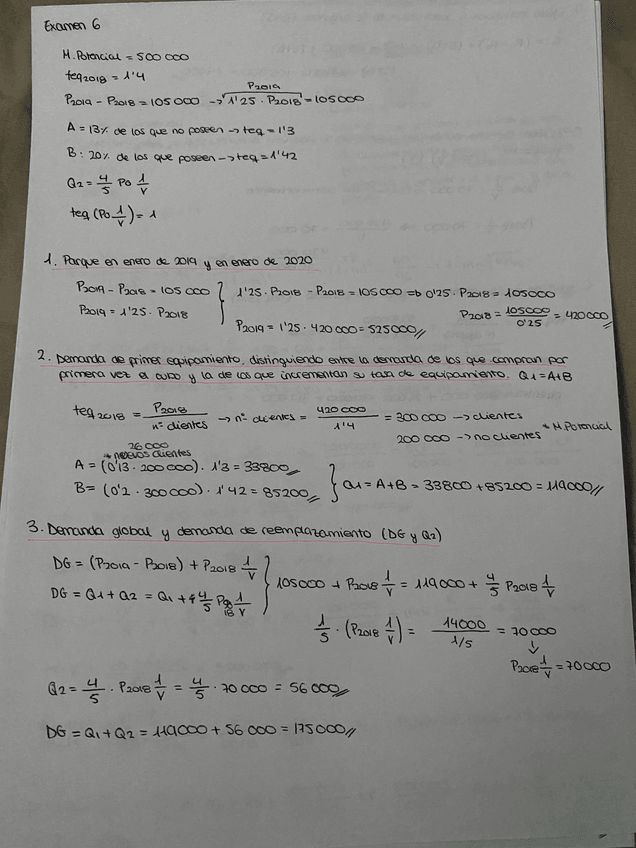 Examen 6
M. Potencial = 500 000
teq2018 = 1'4
P2019 - P2018 = 105 000 -> 1'25 · P2018 = 105000
P2019
A = 13% de los que no poseen -> teq = 1'3
B: 20% de los que poseen -> teq = 1'42
Q2 = 4/5 P0 1/v
teq (P0 1/v) = 1
1. Parque en enero de 2019 y en enero de 2020
P2019 - P2018 = 105 000 } 1'25 · P2018 - P2018 = 105000 => 0'25 · P2018 = 105000
P2019 = 1'25 · P2018
P2018 = 105000/0'25 = 420000//
P2019 = 1'25 · 420 000 = 525000//
2. Demanda de primer equipamiento, distinguiendo entre la demanda de los que compran por
primera vez el auto y la de los que incrementan su tasa de equipamiento. Q1 = A+B
teq2018 = P2018/nº clientes -> nº clientes = 420 000/1'4 = 300 000 -> clientes
200 000 -> no clientes * M. Potencial
26 000
nuevos clientes
A = (0'13 · 200 000) · 1'3 = 33800//
B = (0'2 · 300 000) · 1'42 = 85200// } Q1 = A+B = 33800 + 85200 = 119000//
3. Demanda global y demanda de reemplazamiento (DG y Q2)
DG = (P2019 - P2018) + P2018 1/v
DG = Q1 + Q2 = Q1 + 4/5 P2018 1/v } 105 000 + P2018 1/v = 119 000 + 4/5 P2018 1/v
1/5 · (P2018 1/v) = 14000/1/5 = 70 000
↓
P2018 1/v = 70 000
Q2 = 4/5 · P2018 1/v = 4/5 · 70 000 = 56 000//
DG = Q1 + Q2 = 119 000 + 56 000 = 175000//